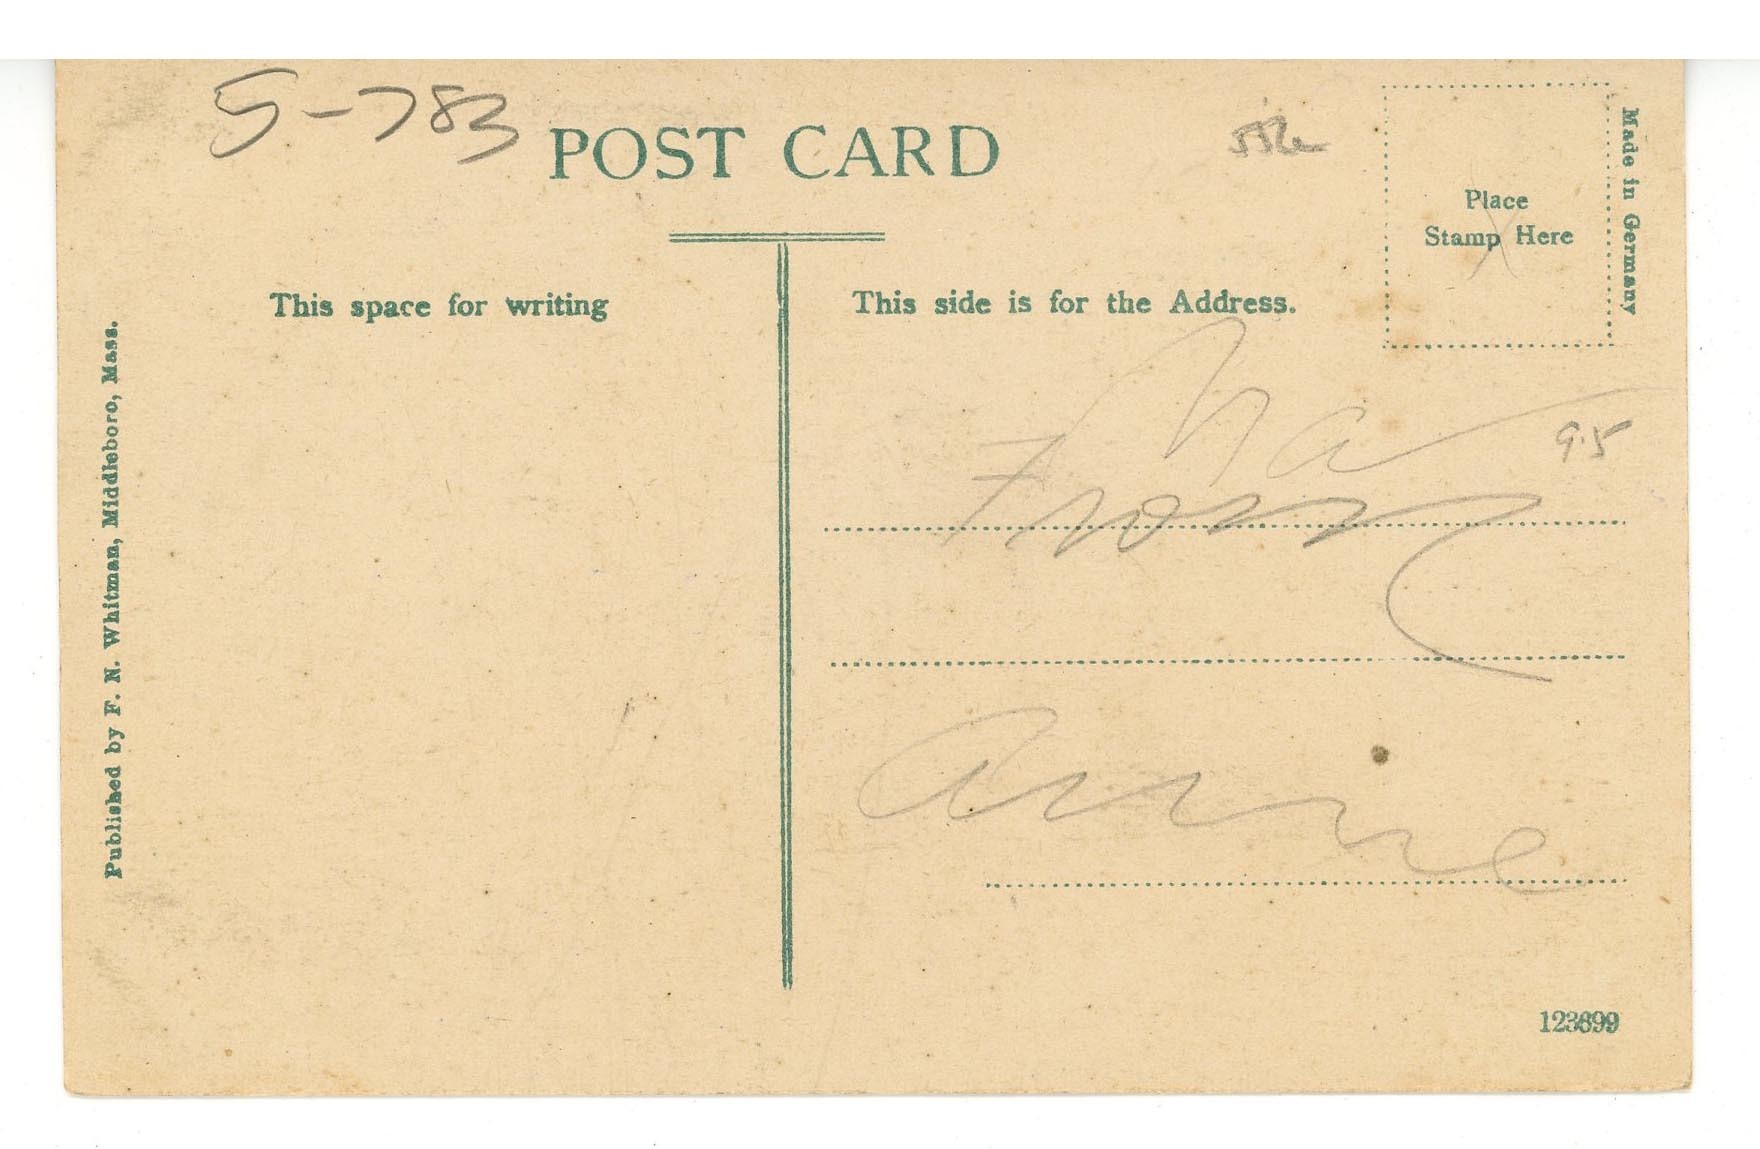 5-783
POST CARD
Made in Germany
Place
Stamp Here
This space for writing
This side is for the Address.
9.5
From
Annie
Published by F. N. Whitman, Middleboro, Mass.
123699